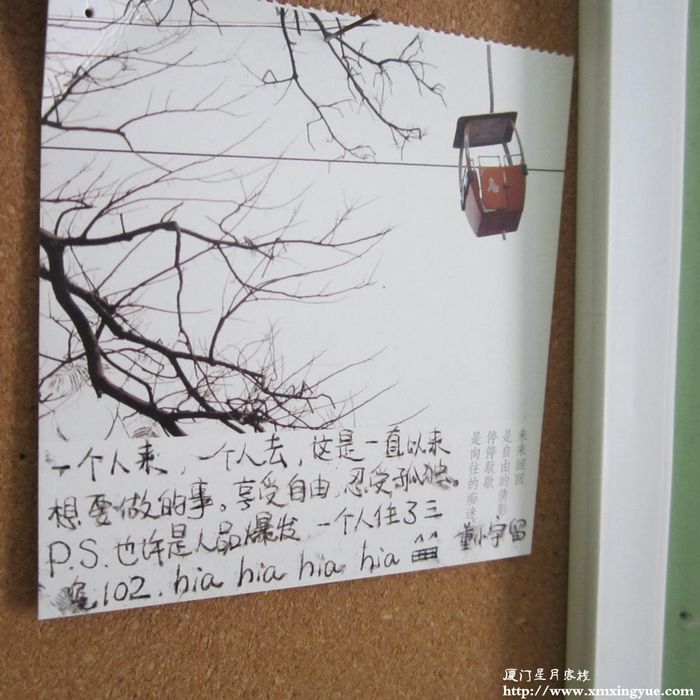 来来回回
是自由的倩影
停停歇歇
是向往的痴迷
一个人来，一个人去，这是一直以来
想要做的事。享受自由，忍受孤独。
P.S.也许是人品爆发，一个人住了三
晚102. hia hia hia hia
董小宇留
厦门星月客栈
http://www.xmxingyue.com